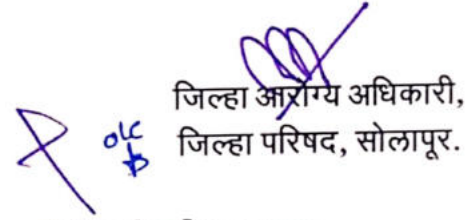 जिल्हा आरोग्य अधिकारी,
जिल्हा परिषद, सोलापूर.